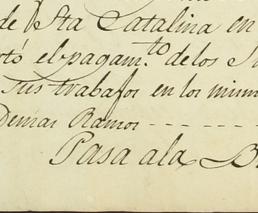 de Sta Catalina en
el pagam.to de los
sus trabajos en los mism
Demas Ramos - - - - -
Pasa ala